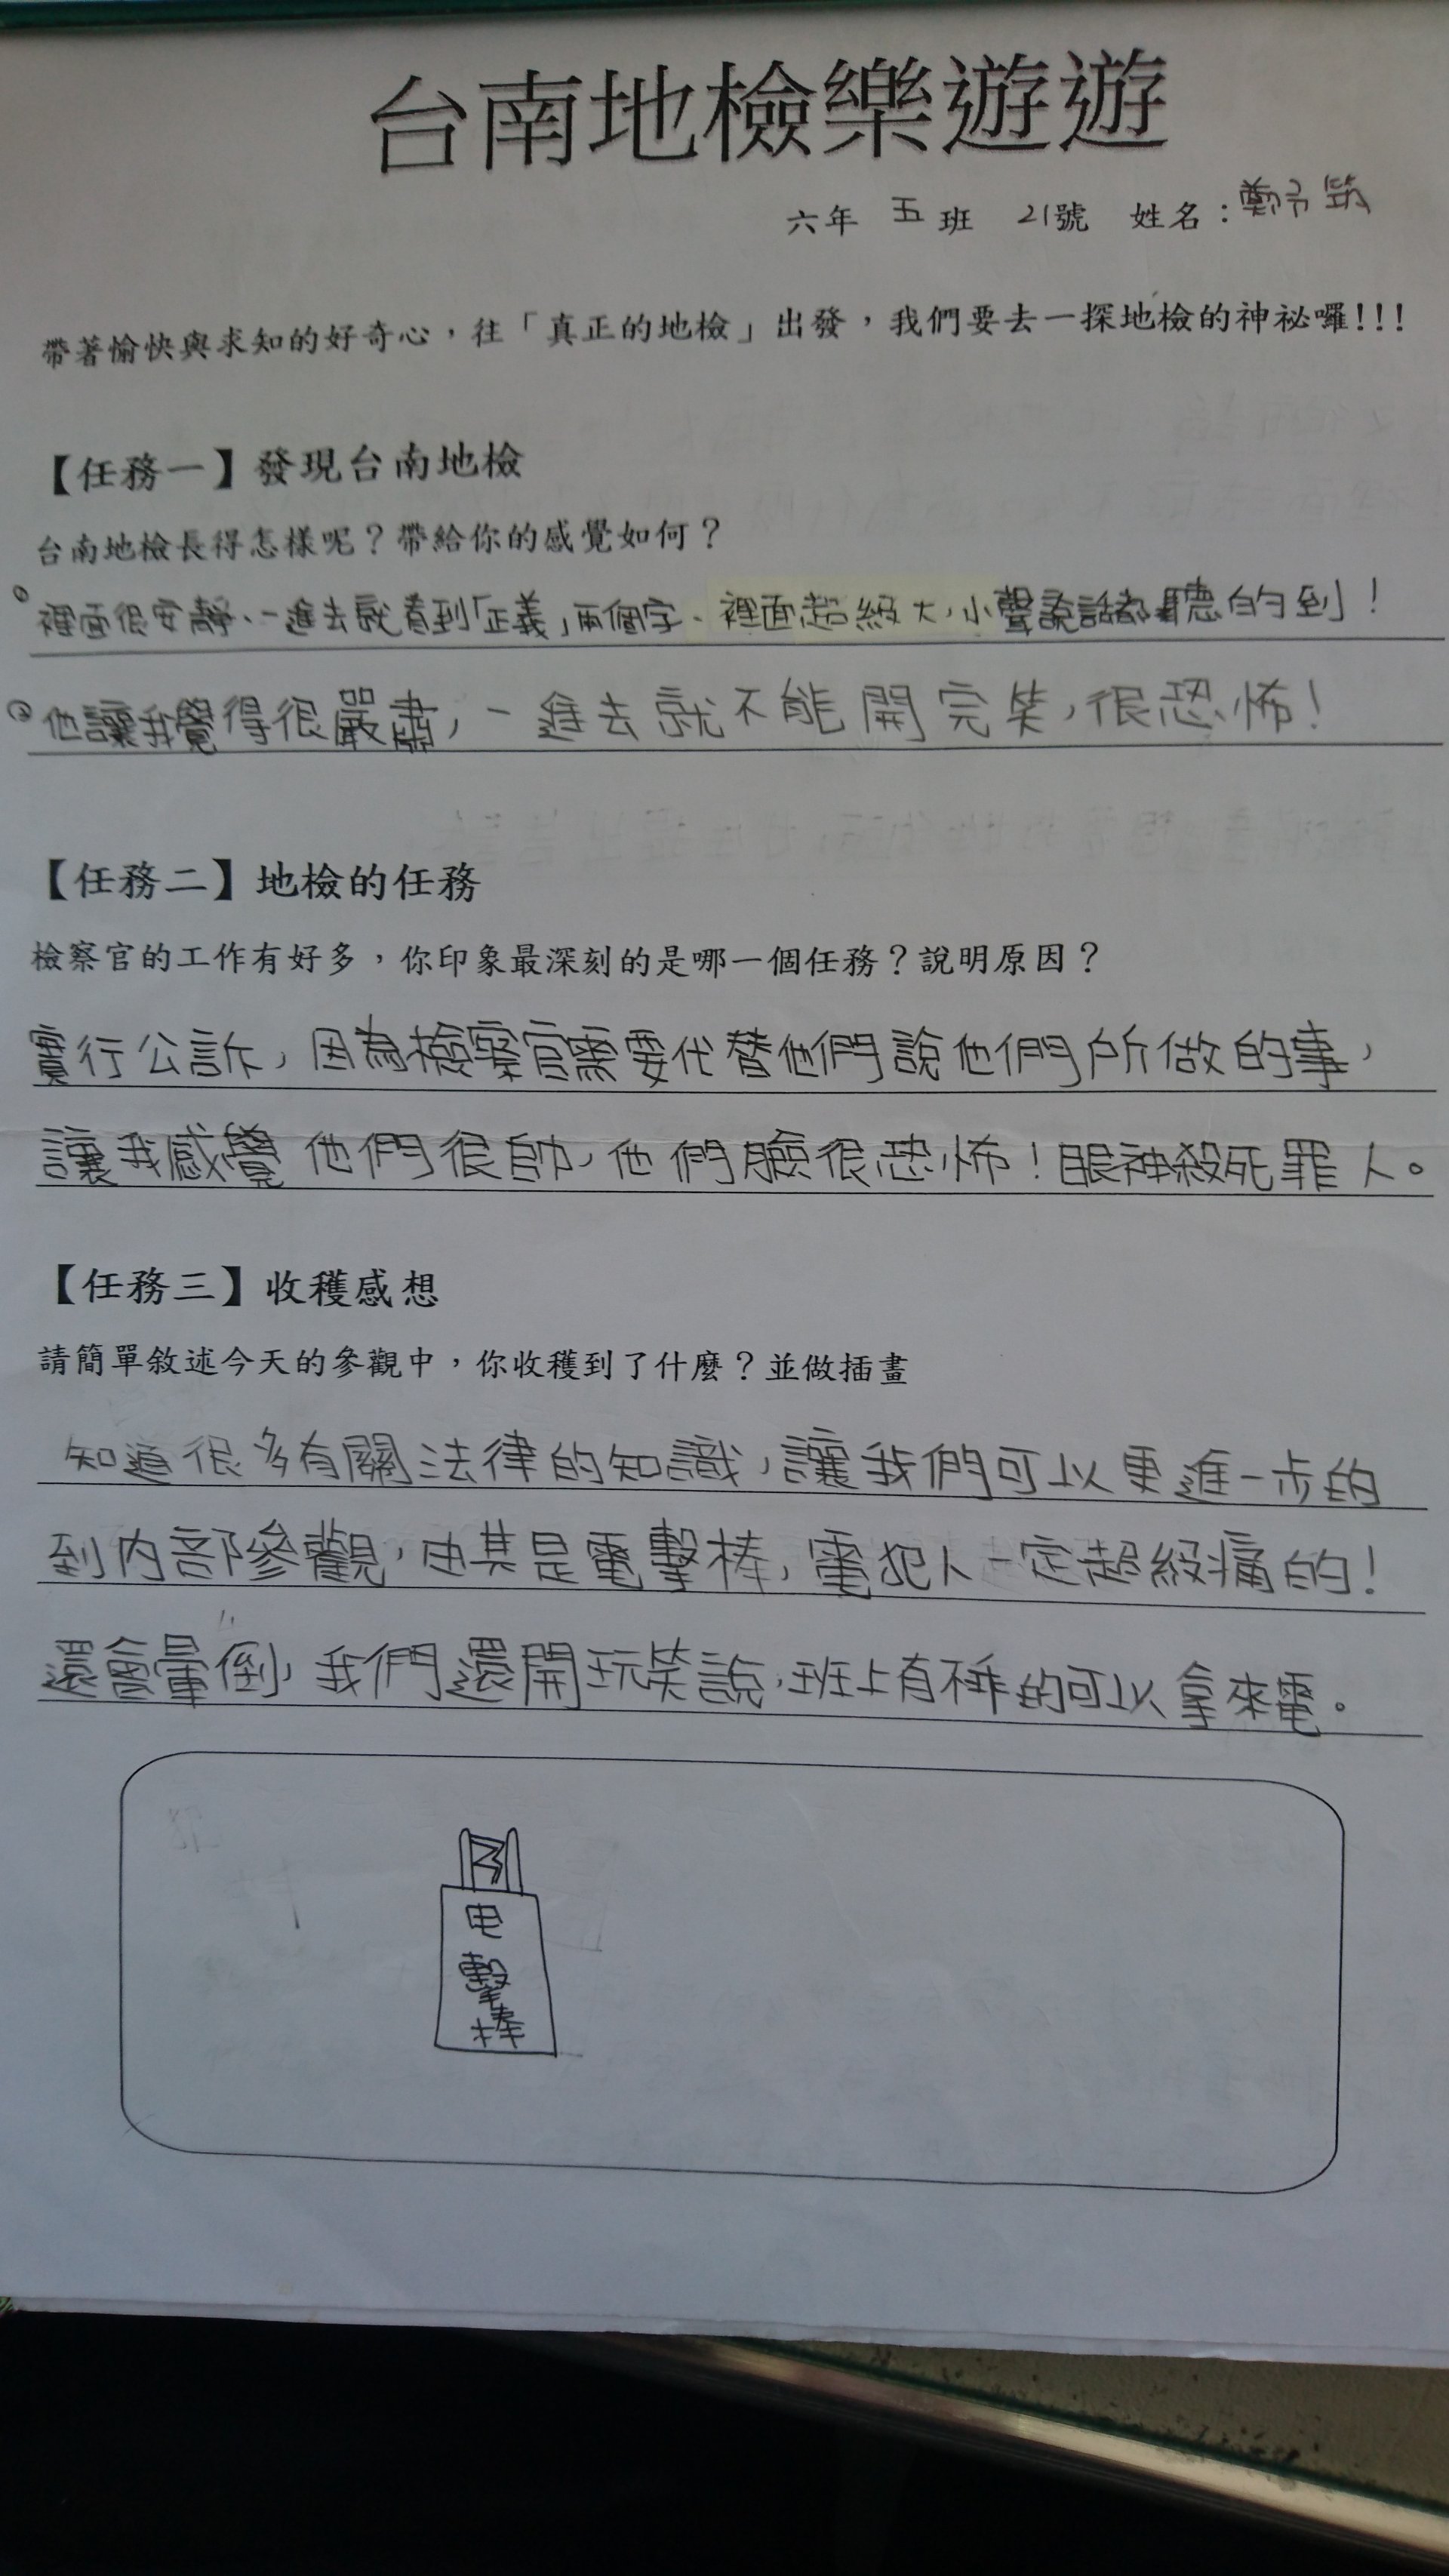 台南地檢樂遊遊
六年 五 班 21號 姓名：鄭予筑
帶著愉快與求知的好奇心，往「真正的地檢」出發，我們要去一探地檢的神祕囉!!!
【任務一】發現台南地檢
台南地檢長得怎樣呢？帶給你的感覺如何？
①裡面很安靜、一進去就看到「正義」兩個字、裡面超級大，小聲說話都聽的到！
②他讓我覺得很嚴肅，一進去就不能開完笑，很恐怖！
【任務二】地檢的任務
檢察官的工作有好多，你印象最深刻的是哪一個任務？說明原因？
實行公訴，因為檢察官需要代替他們說他們所做的事，
讓我感覺他們很帥，他們臉很恐怖！眼神殺死罪人。
【任務三】收穫感想
請簡單敘述今天的參觀中，你收穫到了什麼？並做插畫
知道很多有關法律的知識，讓我們可以更進一步的
到內部參觀，由其是電擊棒，電犯人一定超級痛的！
還會暈倒，我們還開玩笑說，班上有不乖的可以拿來電。
电
擊
棒